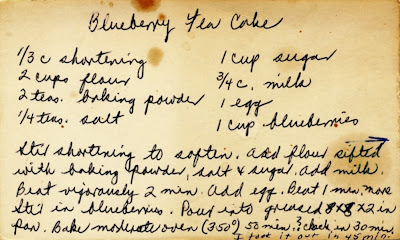 Blueberry Tea Cake
1/3 c shortening 1 cup sugar
2 cups flour 3/4 c. milk
2 teas. baking powder 1 egg
1/4 teas. salt 1 cup blueberries
Stir shortening to soften. Add flour sifted
with baking powder, salt & sugar. add milk.
Beat vigorously 2 min. Add egg. Beat 1 min. more
Stir in blueberries. Pour into greased 8x8x2 in
pan. Bake moderate oven (350°) 50 min. ? check in 30 min.
I took it out in 45 min.